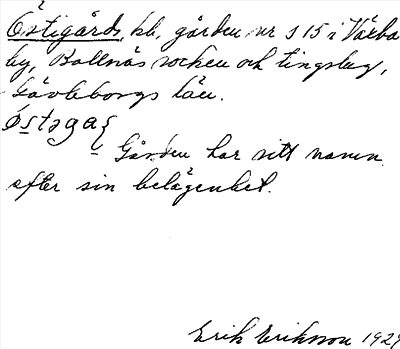 Östigårds, kb, gården nr 5 15 i Växbo
by, Bollnäs socken och tingslag,
Gävleborgs län.
östəga
Gården har sitt namn
efter sin belägenhet.
Erik Eriksson 1929